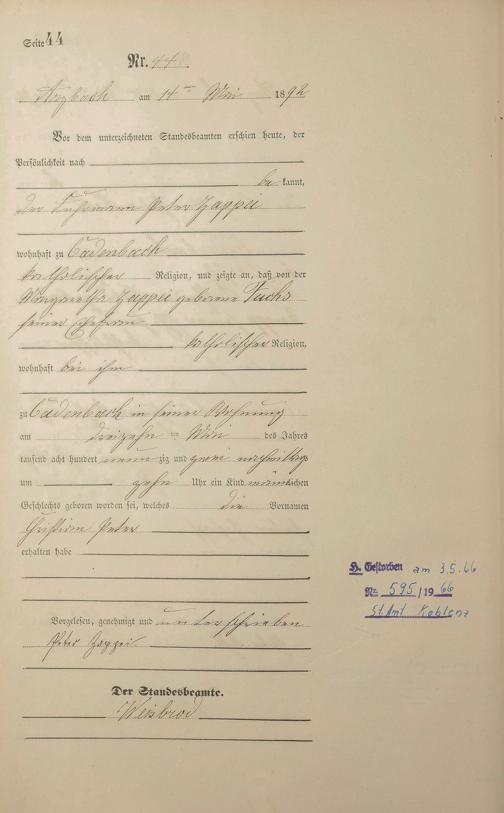 Seite 44
Nr. 44
Arzbach am 14ten Mai 1892
Vor dem unterzeichneten Standesbeamten erschien heute, der
Persönlichkeit nach
be kannt,
der Fuhrmann Peter Zappei
wohnhaft zu Cadenbach
katholischer Religion, und zeigte an, daß von der
Margaretha Zappei geborene Fuchs
seiner Ehefrau
katholischer Religion,
wohnhaft bei ihm
zu Cadenbach in seiner Wohnung
am dreizehn ten Mai des Jahres
tausend acht hundert neun zig und zwei nachmittags
um zehn Uhr ein Kind männlichen
Geschlechts geboren worden sei, welches die Vornamen
Christian Peter
erhalten habe
Vorgelesen, genehmigt und unterschrieben
Peter Zappei
Der Standesbeamte.
Weisbrod
H. Gestorben am 3.5.66
Nr. 595/1966
St.Amt Koblenz